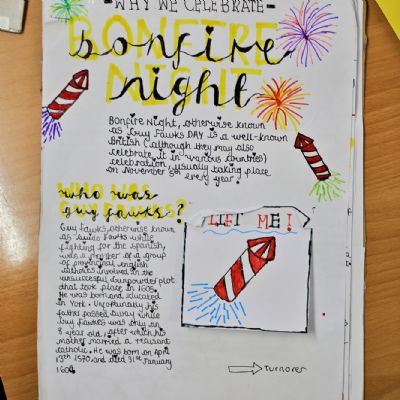 -WHY WE CELEBRATE-
bonfire
night
Bonfire Night, otherwise known
as Guy Fawks DAY is a well-known
British (although they may also
celebrate it in various countries)
celebration, usually taking place
on November 5th every year!
who was
guy fawks?
Guy Fawks, otherwise known
as Guido Fawks while
fighting for the Spanish,
was a member of a group
of provincial english
catholics involved in the
unsuccesful gunpowder plot
that took place in 1605.
He was born and educated
in York. Unfortunatly his
father passed away while
Guy Fawkes was only an
8 year old, after which his
mother married a recusant
catholic. He was born on April
13th 1570 and died 31st January
1606
LIFT ME!
turnover